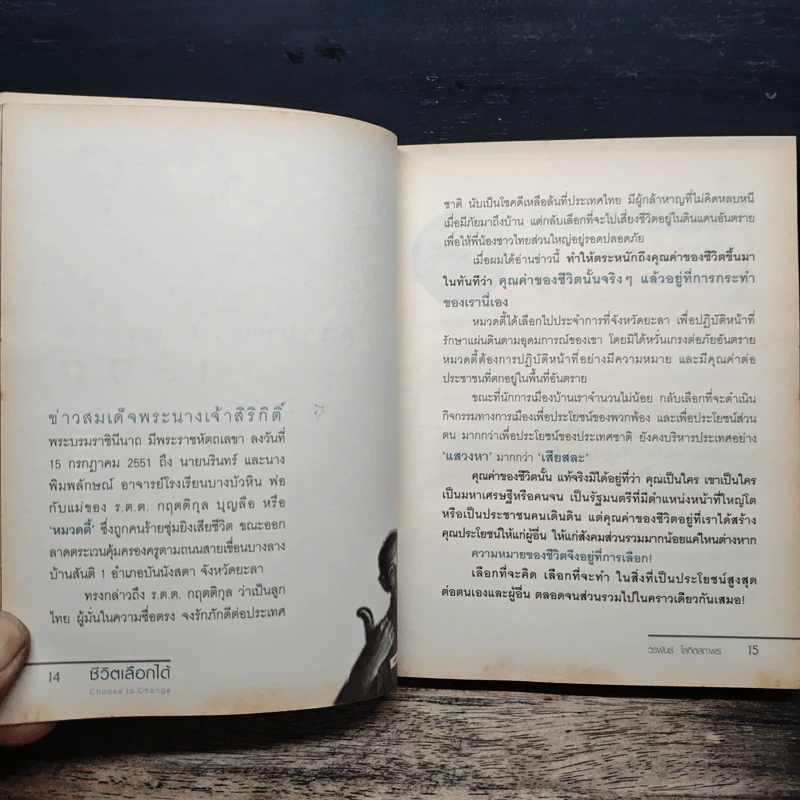 ข่าวสมเด็จพระนางเจ้าสิริกิติ์
พระบรมราชินีนาถ มีพระราชหัตถเลขา ลงวันที่
15 กรกฎาคม 2551 ถึง นายนรินทร์ และนาง
พิมพลักษณ์ อาจารย์โรงเรียนบางบัวหิน พ่อ
กับแม่ของ ร.ต.ต. กฤตติกุล บุญลือ หรือ
'หมวดตี้' ซึ่งถูกคนร้ายซุ่มยิงเสียชีวิต ขณะออก
ลาดตระเวนคุ้มครองครูตามถนนสายเขื่อนบางลาง
บ้านสันติ 1 อำเภอบันนังสตา จังหวัดยะลา
ทรงกล่าวถึง ร.ต.ต. กฤตติกุล ว่าเป็นลูก
ไทย ผู้มั่นในความซื่อตรง จงรักภักดีต่อประเทศ
14 ชีวิตเลือกได้
Choose to Change
ชาติ นับเป็นโชคดีเหลือล้นที่ประเทศไทย มีผู้กล้าหาญที่ไม่คิดหลบหนี
เมื่อมีภัยมาถึงบ้าน แต่กลับเลือกที่จะไปเสี่ยงชีวิตอยู่ในดินแดนอันตราย
เพื่อให้พี่น้องชาวไทยส่วนใหญ่อยู่รอดปลอดภัย
เมื่อผมได้อ่านข่าวนี้ ทำให้ตระหนักถึงคุณค่าของชีวิตขึ้นมา
ในทันทีว่า คุณค่าของชีวิตนั้นจริงๆ แล้วอยู่ที่การกระทำ
ของเรานี่เอง
หมวดตี้ได้เลือกไปประจำการที่จังหวัดยะลา เพื่อปฏิบัติหน้าที่
รักษาแผ่นดินตามอุดมการณ์ของเขา โดยมิได้หวั่นเกรงต่อภัยอันตราย
หมวดตี้ต้องการปฏิบัติหน้าที่อย่างมีความหมาย และมีคุณค่าต่อ
ประชาชนที่ตกอยู่ในพื้นที่อันตราย
ขณะที่นักการเมืองบ้านเราจำนวนไม่น้อย กลับเลือกที่จะดำเนิน
กิจกรรมทางการเมืองเพื่อประโยชน์ของพวกพ้อง และเพื่อประโยชน์ส่วน
ตน มากกว่าเพื่อประโยชน์ของประเทศชาติ ยังคงบริหารประเทศอย่าง
'แสวงหา' มากกว่า 'เสียสละ'
คุณค่าของชีวิตนั้น แท้จริงมิได้อยู่ที่ว่า คุณเป็นใคร เขาเป็นใคร
เป็นมหาเศรษฐีหรือคนจน เป็นรัฐมนตรีที่มีตำแหน่งหน้าที่ใหญ่โต
หรือเป็นประชาชนคนเดินดิน แต่คุณค่าของชีวิตอยู่ที่เราได้สร้าง
คุณประโยชน์ให้แก่ผู้อื่น ให้แก่สังคมส่วนรวมมากน้อยแค่ไหนต่างหาก
ความหมายของชีวิตจึงอยู่ที่การเลือก!
เลือกที่จะคิด เลือกที่จะทำ ในสิ่งที่เป็นประโยชน์สูงสุด
ต่อตนเองและผู้อื่น ตลอดจนส่วนรวมไปในคราวเดียวกันเสมอ!
วรพันธ์ โลกิตสถาพร 15